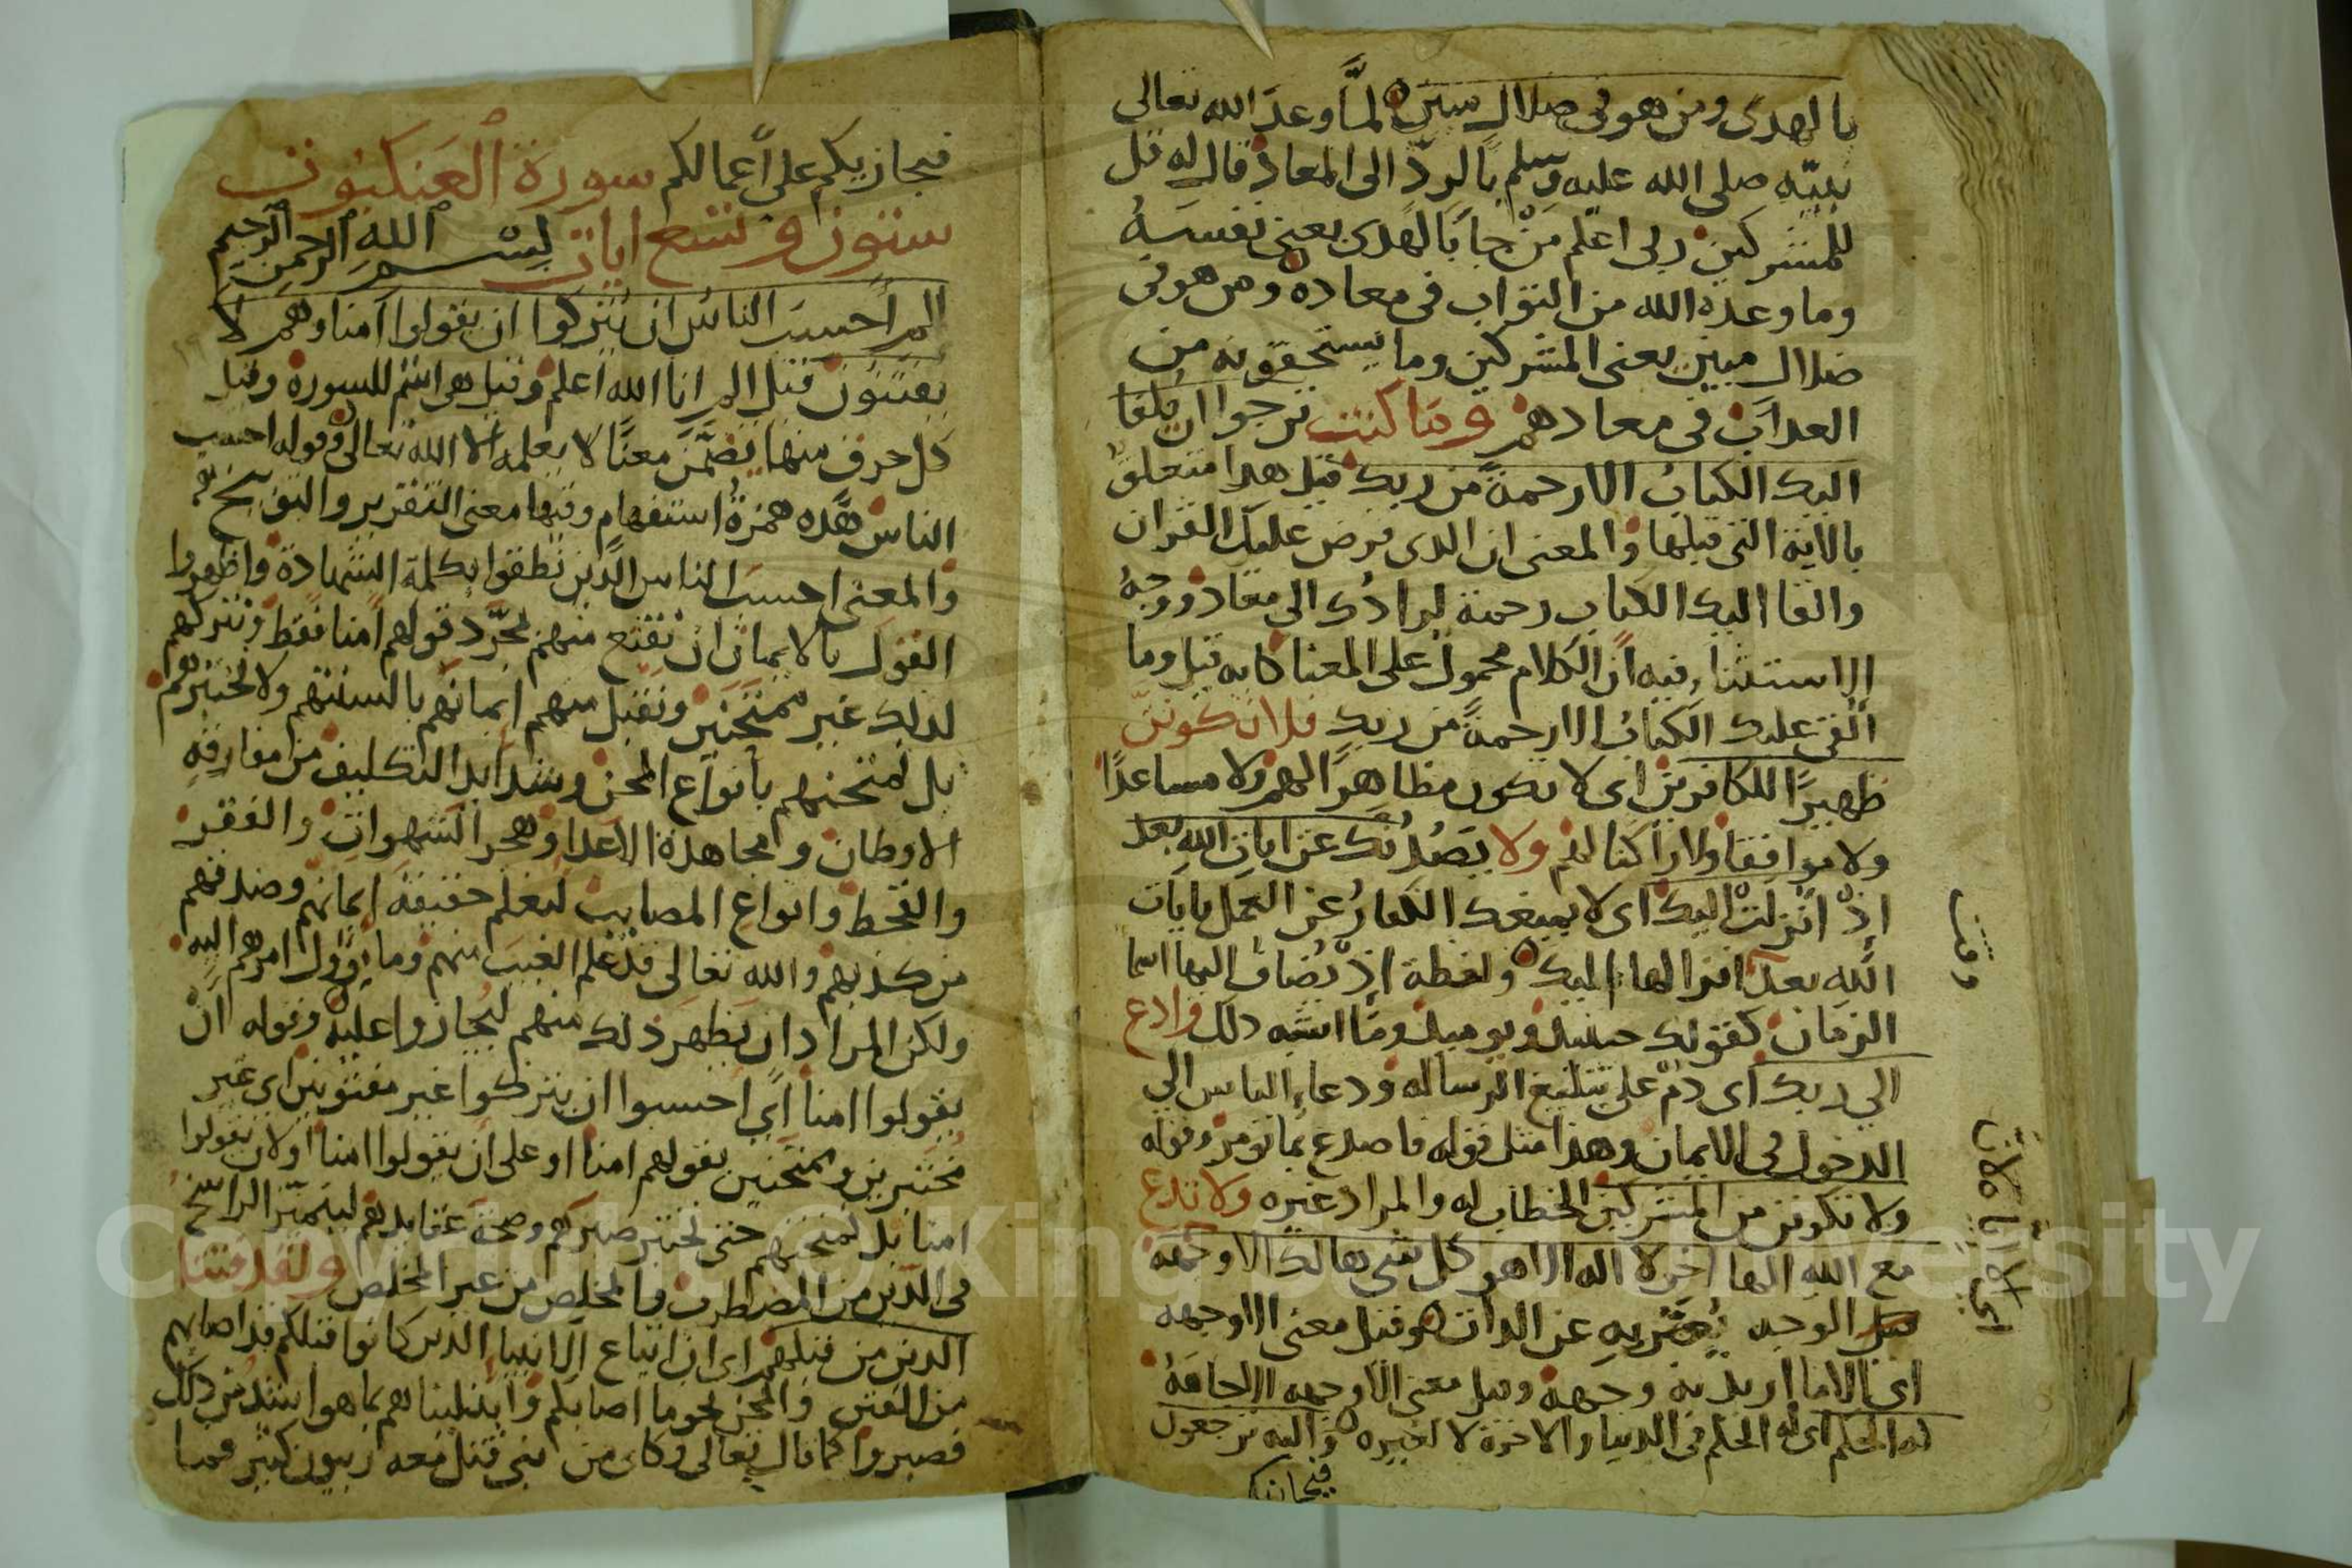 بالهدى ومن هو في ضلال مبين لمّا وعد الله تعالى
نبيّه صلى الله عليه وسلم بالردّ الى المعاد قال له قل
للمشركين ربي اعلم مَنْ جا بالهدى يعني نفسَهُ
وما وعده الله من الثواب في معاده ومن هو في
ضلال مبين يعنى المشركين وما يستحقونه من
العذاب في معادهم وما كنت ترجوا ان يُلقا
اليك الكتابُ الا رحمةً من ربك قيل هذا متعلقٌ
بالاية التي قبلها والمعنى ان الذي فرض عليك القران
والقا اليك الكتاب رحمة لرادُّك الى معاد ووجهُ
الاستثناء فيه انّ الكلام محمول على المعنا كانه قيل وما
أُلقى عليك الكتابُ الا رحمةً من ربك فلا تكوننّ
ظهيرًا للكافرين اى لا تكون مظاهرًا لهم ولا مساعدًا
ولا موافقا ولا راكنا لهم ولا يَصُدُّنّك عن ايات الله بعد
اذْ انْزلتْ اليك اى لا يمنعك الكفارُ عن العمل بايات
الله بعد انزالها اليك ولفظة اذْ يُضاف اليها اسما
الزمان كقولك حينيذ ويوميذ وما اشبه ذلك وادع
الي ربك اى دُمْ على تبليغ الرساله ودعاء الناس الي
الدخول في الايمان وهذا مثل قوله فاصدع بما تومر وقوله
ولا تكونن من المشركين الخطاب له والمراد غيره ولا تدع
مع الله الها اخر لا اله الا هو كل شي هالك الا وجهه
قيل الوجه يُعبَّر به عن الذات وقيل معنى الا وجهه
اى الا ما اريد به وجهه وقيل معنى الا وجهه الا جاهَهُ
له الحكم اى له الحكم في الدنيا والاخرة لا لغيره واليه ترجعون
فيجازيكم
وقت
اي الا
فيجازيكم على أعمالكم سورة العنكبوت
ستون وتسع ايات بسم الله الرحمن الرحيم
الم احسبَ الناسُ ان يُتركوا ان يقولوا آمنا وهم لا
يفتنون قيل الم انا الله أعلم وقيل هى اسْم للسورة وقيل
كل حرف منها يتضمّن معنًا لا يعلمه الا الله تعالى وقوله احسب
الناس هَذه همزةُ استفهام وفيها معنى التقرير والتوبيخ
والمعنى احسبَ الناس الذين نطقوا بكلمة الشهادة واظهروا
القول بالايمان ان نقنع منهم بمجرّد قولهم امنا فقط ونتركهم
لذلك غير ممتحَنين ونقبل منهم ايمانهم بالسنتهم ولا نختبرهم
بل نمتحنهم بأنواع المحن وشدايد التكليف من مفارقة
الاوطان ومجاهدة الاعدا وهجر الشهوات والفقر
والقحط وانواع المصايب ليُعلم حقيقة ايمانهم وصدقهم
من كذبهم والله تعالى قد علم الغيب منهم وما يؤول امرهم اليه
ولكن المراد ان يظهر ذلك منهم ليُجازوا عليه وقوله انْ
يقولوا امنا اي احسبوا ان يتركوا غير مفتونين اي غير
مُختبرين وممتَحَنين بقولهم امنا او على ان يقولوا امنا او لان يقولوا
امنا بل نمتحنهم حتى نختبر صبرهم وصحة عقايدهم ليتميّز الراسخُ
في الدين من المضطرب والمخلص من غير المخلص ولقد فتنا
الذين من قبلهم اى ان اتباع الانبيا الذين كانوا قبلكم قد اصابهم
من الفتن والمحن نحو ما اصابكم وابتليناهم بما هو اشد من ذلك
فصبروا كما قال تعالى وكاين من نبي قتل معه ربيون كثير فما
Copyright © King Saud University